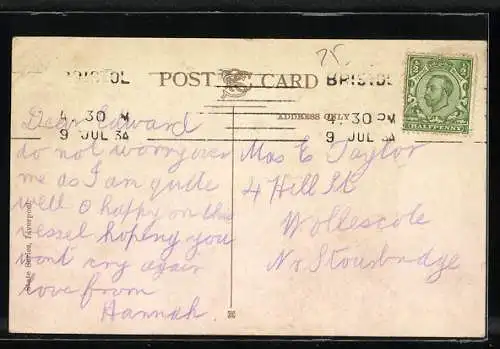 75
BRISTOL
POST CARD
BRISTOL
4 30 PM
ADDRESS ONLY
4. 30 PM
9 JUL 3A
9 JUL 3A
HALFPENNY
Dear Edward
do not worry over
me as I am quite
well & happy on this
vessel hoping you
wont cry again
love from
Hannah.
Mrs E Taylor
4 Hill St
Wollescote
Nr Stourbridge
Series, Liverpool